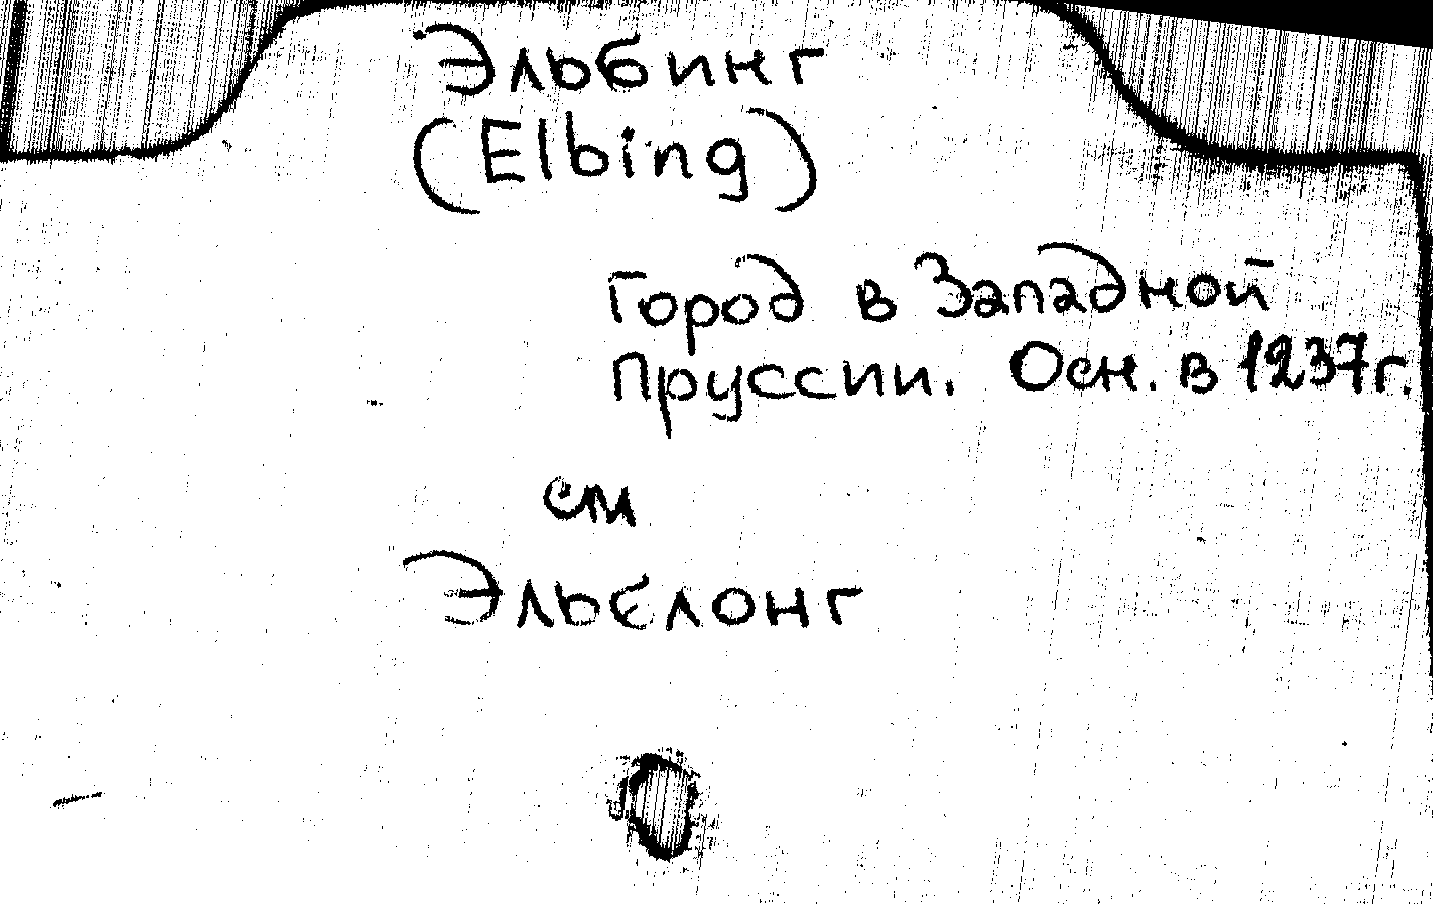 Эльбинг
(Elbing)
Город в Западной
Пруссии. Осн. в 1237г.
см
Эльблонг